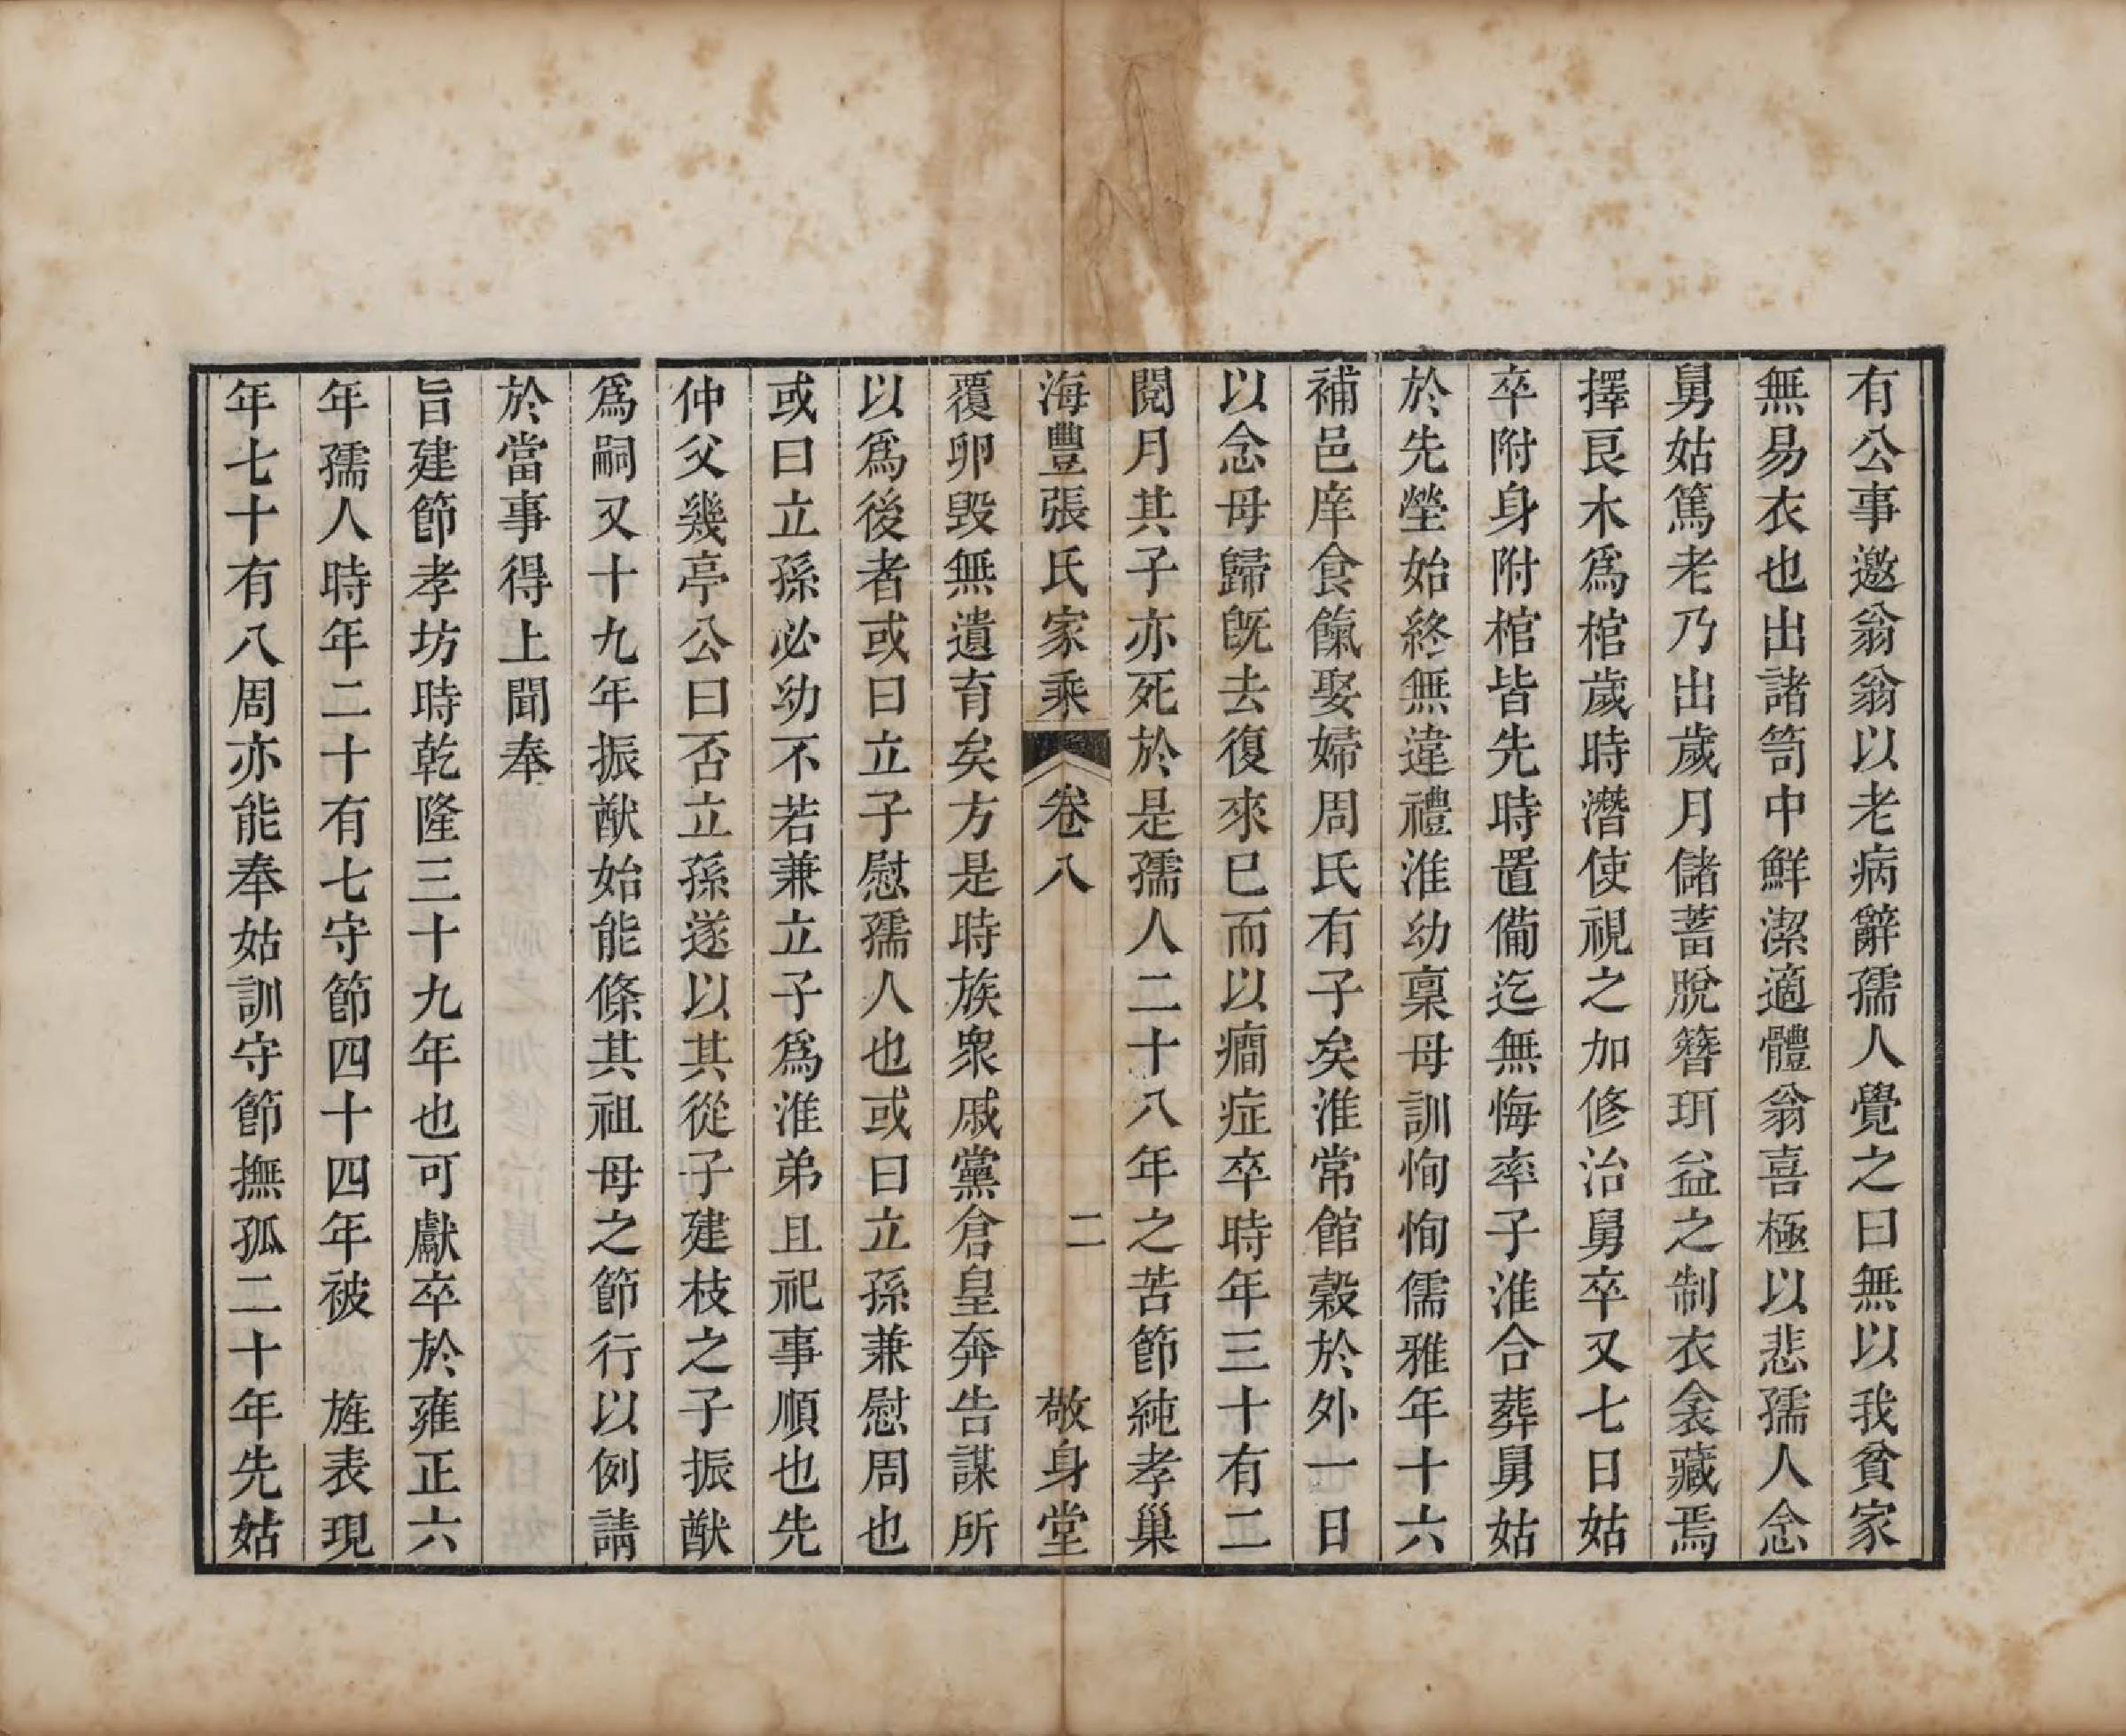 有公事邀翁翁以老病辭孺人覺之曰無以我貧家
無易衣也出諸笥中鮮潔適體翁喜極以悲孺人念
舅姑篤老乃出歲月儲蓄脫簪珥益之制衣衾藏焉
擇良木爲棺歲時潛使視之加修治舅卒又七日姑
卒附身附棺皆先時置備迄無悔率子淮合葬舅姑
於先塋始終無違禮淮幼稟母訓恂恂儒雅年十六
補邑庠食餼娶婦周氏有子矣淮常館穀於外一日
以念母歸旣去復來巳而以癇症卒時年三十有二
閱月其子亦死於是孺人二十八年之苦節純孝巢
海豐張氏家乘 卷八 二 敬身堂
覆卵毀無遺育矣方是時族衆戚黨倉皇奔告謀所
以爲後者或曰立子慰孺人也或曰立孫兼慰周也
或曰立孫必幼不若兼立子爲淮弟且祀事順也先
仲父幾亭公曰否立孫遂以其從子建枝之子振猷
爲嗣又十九年振猷始能條其祖母之節行以例請
於當事得上聞奉
旨建節孝坊時乾隆三十九年也可獻卒於雍正六
年孺人時年二十有七守節四十四年被 旌表現
年七十有八周亦能奉姑訓守節撫孤二十年先姑